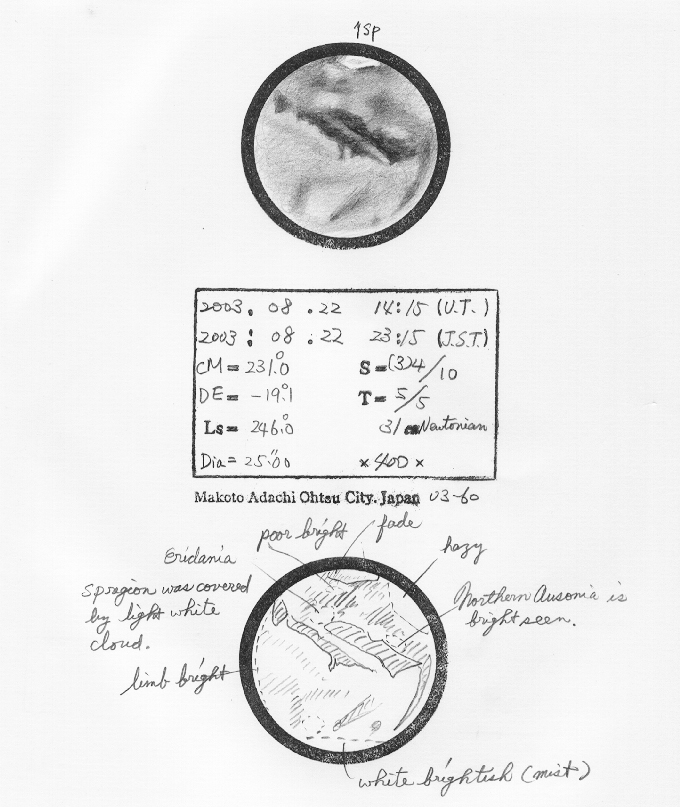 ↑SP
2003. 08 .22 14:15 (U.T.)
2003: 08 .22 23:15 (J.S.T.)
CM= 231.°0 S=(3)4/10
DE= -19.°1 T= 5/5
Ls= 246.°0 31 cm Newtonian
Dia= 25."00 ×400×
Makoto Adachi Ohtsu City. Japan 03-60
poor bright fade
Eridania hazy
Spregion was covered
by light white
cloud.
Northern Ausonia is
bright seen.
limb bright
white brightish (mist)